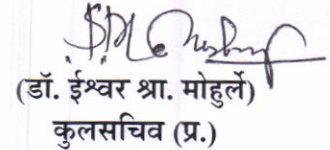 (डॉ. ईश्वर श्रा. मोहुर्ले)
कुलसचिव (प्र.)